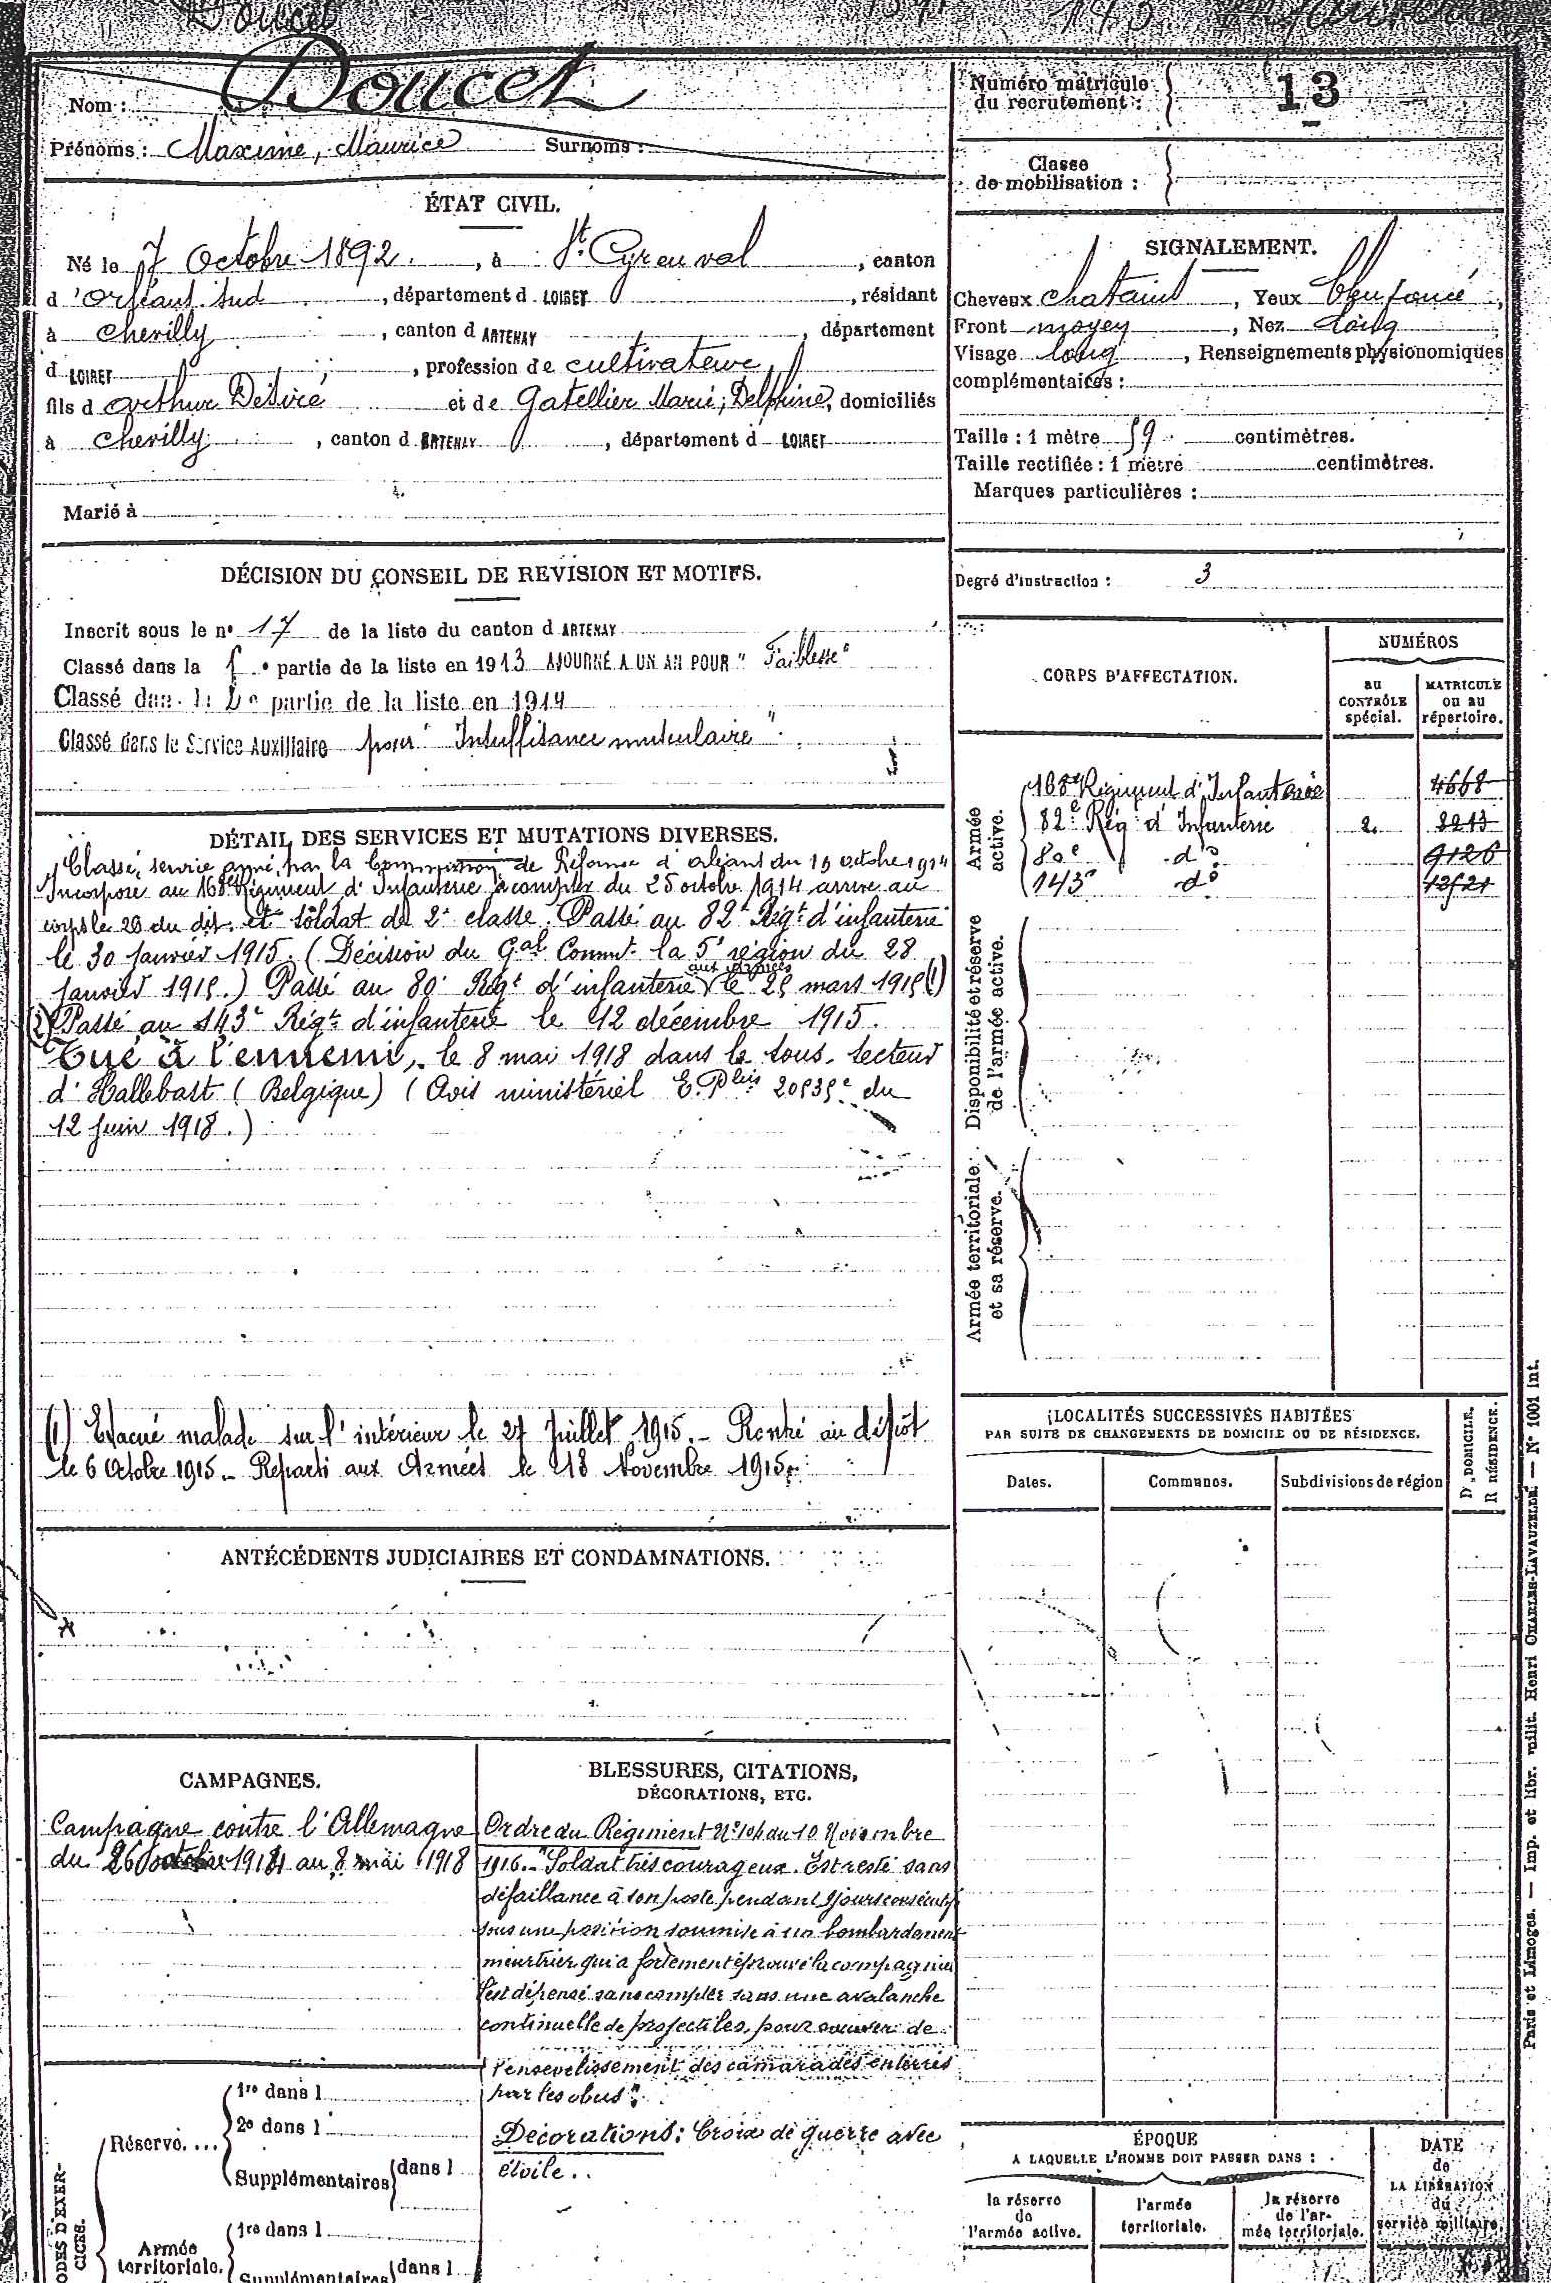 Doucet
143
Nom : Doucet
Prénoms : Maxime, Maurice Surnoms :
ÉTAT CIVIL.
Né le 7 Octobre 1892, à St Cyr en val, canton
d'Orléans Sud, département d LOIRET, résidant
à Chevilly, canton d ARTENAY, département
d LOIRET, profession de cultivateur
fils d Arthur Désiré et de Gatellier Marie, Delphine, domiciliés
à Chevilly, canton d ARTENAY, département d LOIRET
Marié à
DÉCISION DU CONSEIL DE REVISION ET MOTIFS.
Inscrit sous le n° 17 de la liste du canton d ARTENAY
Classé dans la 5e partie de la liste en 1913 AJOURNÉ A UN AN POUR "Faiblesse"
Classé dans la 2e partie de la liste en 1914
Classé dans le Service Auxiliaire pour "Insuffisance musculaire"
DÉTAIL DES SERVICES ET MUTATIONS DIVERSES.
Classé service armé par la Commission de Réforme d'Orléans du 19 octobre 1914
Incorporé au 168e Régiment d'Infanterie à compter du 25 octobre 1914 arrivé au
corps le 26 du dit et soldat de 2e classe. Passé au 82e Régt d'infanterie
le 30 janvier 1915. (Décision du Gal Commt la 5e région du 28
janvier 1915.) Passé au 80e Régt d'infanterie aux Armées le 25 mars 1915 (1)
(2) Passé au 143e Régt d'infanterie le 12 décembre 1915.
Tué à l'ennemi, le 8 mai 1918 dans le sous-secteur
d'Hallebast (Belgique) (Avis ministériel E. Plein 20535e du
12 juin 1918.)
(1) Evacué malade sur l'intérieur le 27 Juillet 1915. - Rentré au dépôt
le 6 Octobre 1915. - Reparti aux Armées le 18 Novembre 1915.
ANTÉCÉDENTS JUDICIAIRES ET CONDAMNATIONS.
CAMPAGNES.
Campagne contre l'Allemagne
du 26 octobre 1914 au 8 mai 1918
BLESSURES, CITATIONS,
DÉCORATIONS, ETC.
Ordre du Régiment N° 104 du 10 Novembre
1916. - "Soldat très courageux. Est resté sans
défaillance à son poste pendant 9 jours consécutifs
sous une position soumise à un bombardement
meurtrier qui a fortement éprouvé la compagnie
s'est dépensé sans compter sous une avalanche
continuelle de projectiles, pour sauver de
l'ensevelissement des camarades enterrés
par les obus".
Décorations : Croix de guerre avec
étoile.
ODES D'EXER-
CICES.
Réserve....
1re dans l
2e dans l
Supplémentaires dans l
Armée
territoriale.
1re dans l
Supplémentaires dans l
Numéro matricule
du recrutement : 13
Classe
de mobilisation :
SIGNALEMENT.
Cheveux chatains, Yeux bleu foncé,
Front moyen, Nez long
Visage long, Renseignements physionomiques
complémentaires :
Taille : 1 mètre 59 centimètres.
Taille rectifiée : 1 mètre centimètres.
Marques particulières :
Degré d'instruction : 3
CORPS D'AFFECTATION.
NUMÉROS
au
CONTRÔLE
spécial.
MATRICULE
ou au
répertoire.
Armée
active.
168e Régiment d'Infanterie 4668
82e Régt d'Infanterie 2. 8213
80e do 9126
143e do 13521
Disponibilité et réserve
de l'armée active.
Armée territoriale
et sa réserve.
LOCALITÉS SUCCESSIVES HABITÉES
PAR SUITE DE CHANGEMENTS DE DOMICILE OU DE RÉSIDENCE.
Dates. Communes. Subdivisions de région
D, DOMICILE.
R RÉSIDENCE.
ÉPOQUE
A LAQUELLE L'HOMME DOIT PASSER DANS :
la réserve
de
l'armée active.
l'armée
territoriale.
la réserve
de l'ar-
mée territoriale.
DATE
de
LA LIBÉRATION
du
service militaire.
Paris et Limoges. — Imp. et libr. milit. Henri CHARLES-LAVAUZELLE. — N° 1001 int.